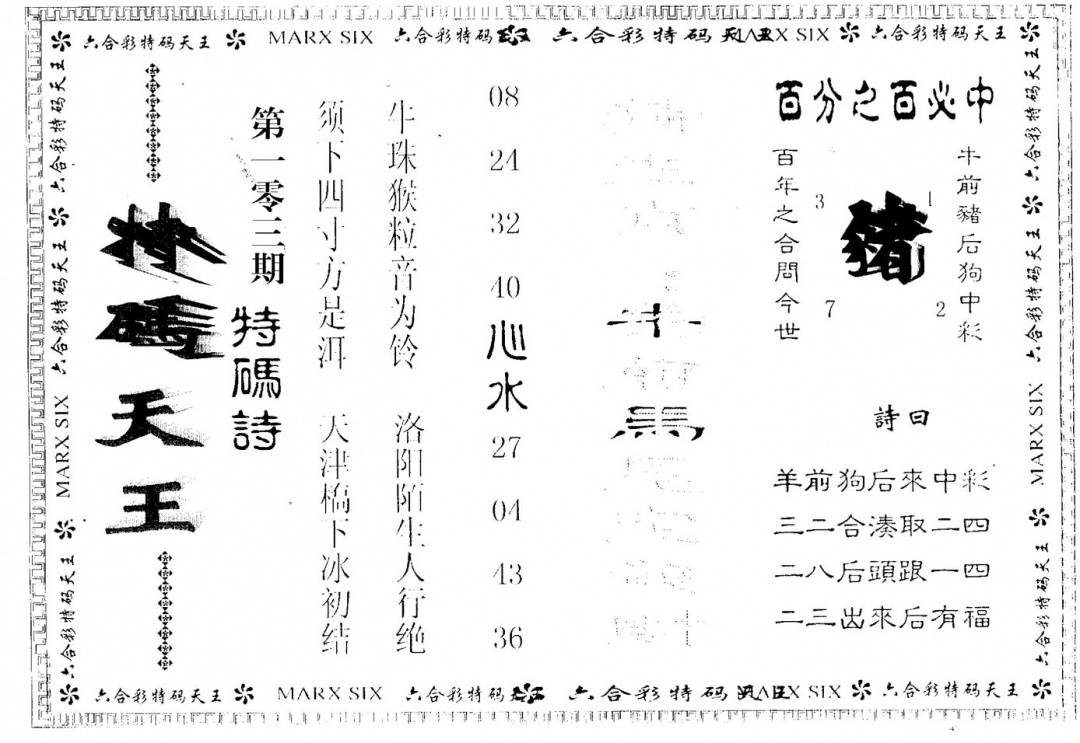 六合彩特码天王 MARX SIX 六合彩特码 六合彩特码 MARX SIX 六合彩特码天王
百分之百必中
牛前豬后狗中彩
豬
1
3
2
7
百年之合問今世
詩曰
羊前狗后來中彩
三二合湊取二四
二八后頭跟一四
二三出來后有福
牛
馬
08
24
32
40
心水
27
04
43
36
牛珠猴粒音为铃 洛阳陌生人行绝
须下四寸方是洱 天津橋下冰初结
第一零三期
特碼詩
特碼天王
六合彩特码天王
六合彩特码天王
MARX SIX
六合彩特码天王
六合彩特码天王
六合彩特码天王
MARX SIX
六合彩特码天王
六合彩特码天王 MARX SIX 六合彩特码 六合彩特码 MARX SIX 六合彩特码天王